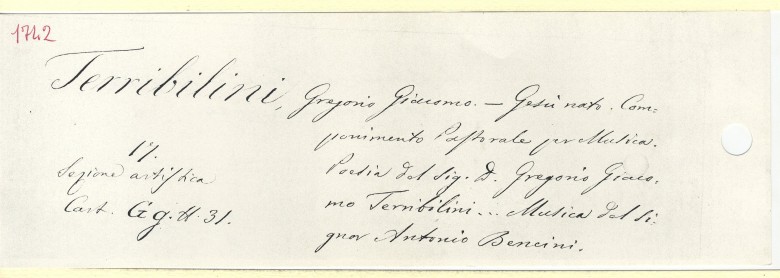 1742
Terribilini, Gregorio Giacomo. — Gesù nato. Com=
ponimento Pastorale per Musica.
Poesia del Sig. D. Gregorio Giaco=
mo Terribilini... Musica del Si=
gnor Antonio Bencini.
17.
Sezione artistica
Cart. Gg. H. 31.